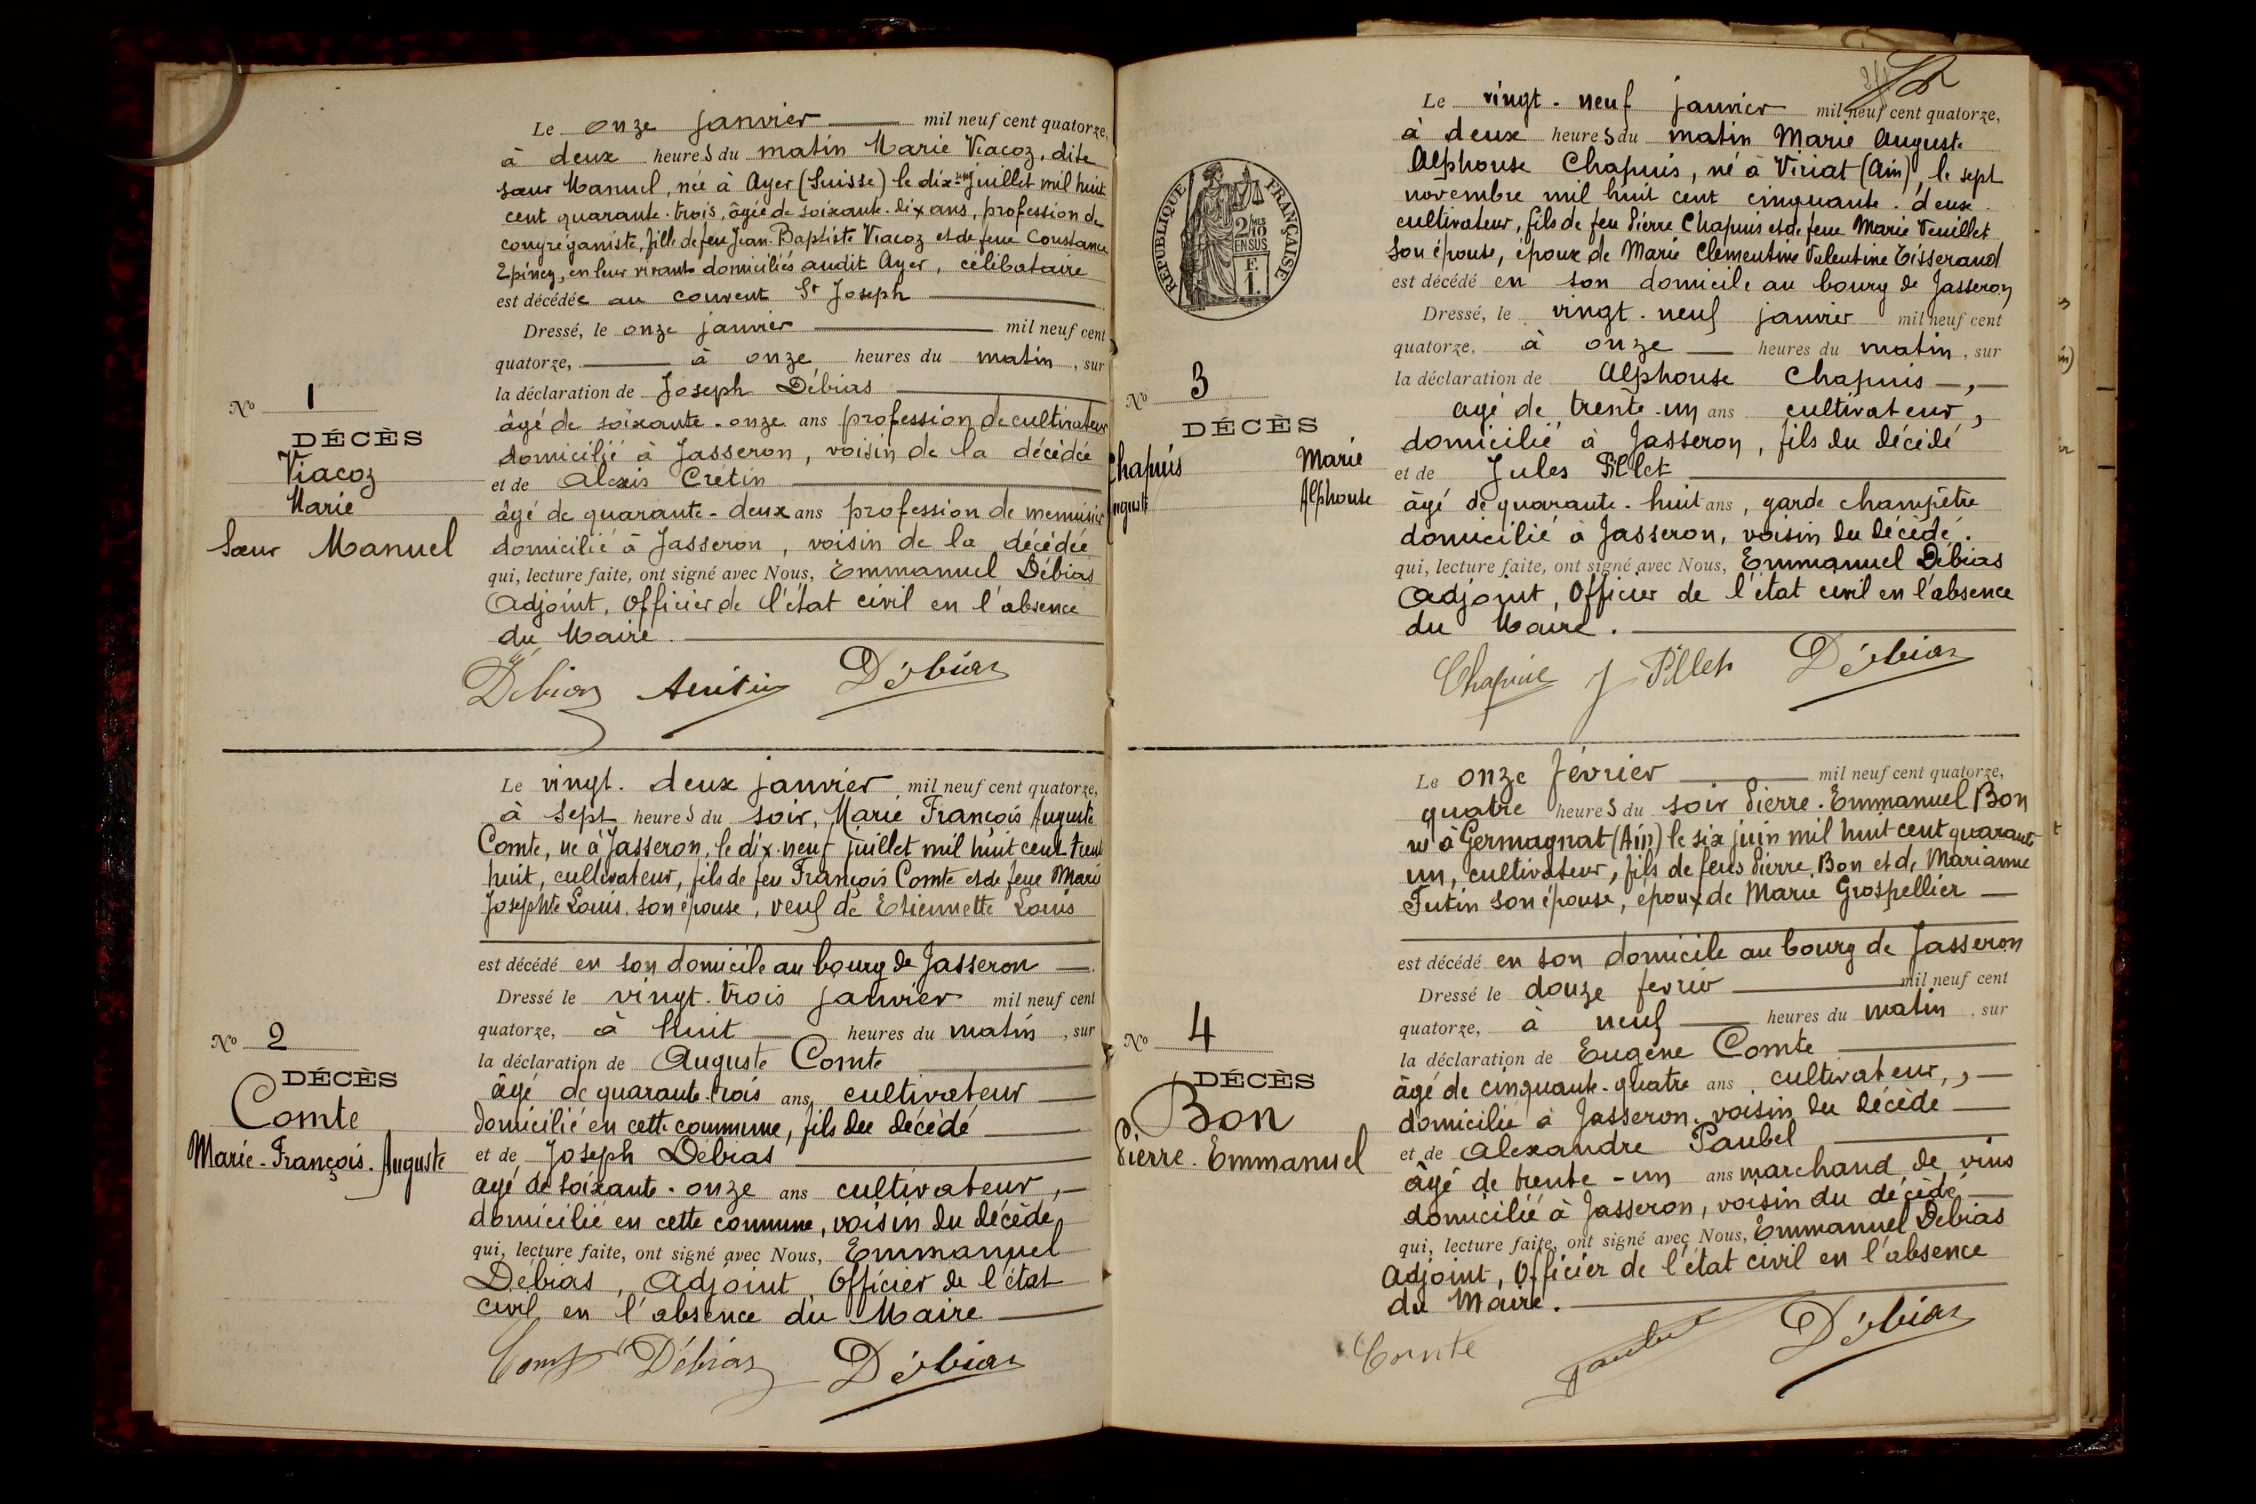 Le onze janvier mil neuf cent quatorze,
à deux heures du matin Marie Viacoz, dite
sœur Manuel, née à Ayer (Suisse) le dix juillet mil huit
cent quarante-trois, âgée de soixante-dix ans, profession de
congréganiste, fille de feu Jean-Baptiste Viacoz et de feue Constance
Epiney, en leur vivants domiciliés audit Ayer, célibataire
est décédée au couvent St Joseph
Dressé, le onze janvier mil neuf cent
quatorze, à onze heures du matin, sur
la déclaration de Joseph Débias
âgé de soixante-onze ans profession de cultivateur
domicilié à Jasseron, voisin de la décédée
et de Alexis Crétin
âgé de quarante-deux ans profession de menuisier
domicilié à Jasseron, voisin de la décédée
qui, lecture faite, ont signé avec Nous, Emmanuel Débias
Adjoint, Officier de l'état civil en l'absence
du Maire.
Débias Débias
No 1
DÉCÈS
Viacoz
Marie
Sœur Manuel
Le vingt-deux janvier mil neuf cent quatorze,
à sept heures du soir, Marie François Auguste
Comte, né à Jasseron, le dix-neuf juillet mil huit cent trente
huit, cultivateur, fils de feu François Comte et de feue Marie
Josephte Louis, son épouse, veuf de Etiennette Louis
est décédé en son domicile au bourg de Jasseron
Dressé le vingt-trois janvier mil neuf cent
quatorze, à huit heures du matin, sur
la déclaration de Auguste Comte
âgé de quarante-trois ans, cultivateur
domicilié en cette commune, fils du décédé
et de Joseph Débias
âgé de soixante-onze ans cultivateur,
domicilié en cette commune, voisin du décédé,
qui, lecture faite, ont signé avec Nous, Emmanuel
Débias, Adjoint, Officier de l'état
civil en l'absence du Maire
Comte Débias Débias
No 2
DÉCÈS
Comte
Marie-François-Auguste
Le vingt-neuf janvier mil neuf cent quatorze,
à deux heures du matin Marie Auguste
Alphonse Chapuis, né à Viriat (Ain), le sept
novembre mil huit cent cinquante-deux
cultivateur, fils de feu Pierre Chapuis et de feue Marie Veuillet
son épouse, époux de Marie Clémentine Valentine Tisserand
est décédé en son domicile au bourg de Jasseron
Dressé, le vingt-neuf janvier mil neuf cent
quatorze, à onze heures du matin, sur
la déclaration de Alphonse Chapuis,
âgé de trente-un ans cultivateur,
domicilié à Jasseron, fils du décédé
et de Jules Pillet
âgé de quarante-huit ans, garde champêtre
domicilié à Jasseron, voisin du décédé.
qui, lecture faite, ont signé avec Nous, Emmanuel Débias
Adjoint, Officier de l'état civil en l'absence
du Maire.
Chapuis J Pillet Débias
RÉPUBLIQUE FRANÇAISE
2/10 MES
EN SUS
F.
1.
No 3
DÉCÈS
Chapuis Marie
Auguste Alphonse
Le onze février mil neuf cent quatorze,
quatre heures du soir Pierre-Emmanuel Bon
né à Germagnat (Ain) le six juin mil huit cent quarante
un, cultivateur, fils de feus Pierre Bon et de Marianne
Tutin son épouse, époux de Marie Grospellier
est décédé en son domicile au bourg de Jasseron
Dressé le douze février mil neuf cent
quatorze, à neuf heures du matin, sur
la déclaration de Eugène Comte
âgé de cinquante-quatre ans cultivateur,
domicilié à Jasseron, voisin du décédé
et de Alexandre Paubel
âgé de trente-un ans marchand de vins
domicilié à Jasseron, voisin du décédé
qui, lecture faite, ont signé avec Nous, Emmanuel Débias
Adjoint, Officier de l'état civil en l'absence
du Maire.
Comte Paubel Débias
No 4
DÉCÈS
Bon
Pierre-Emmanuel